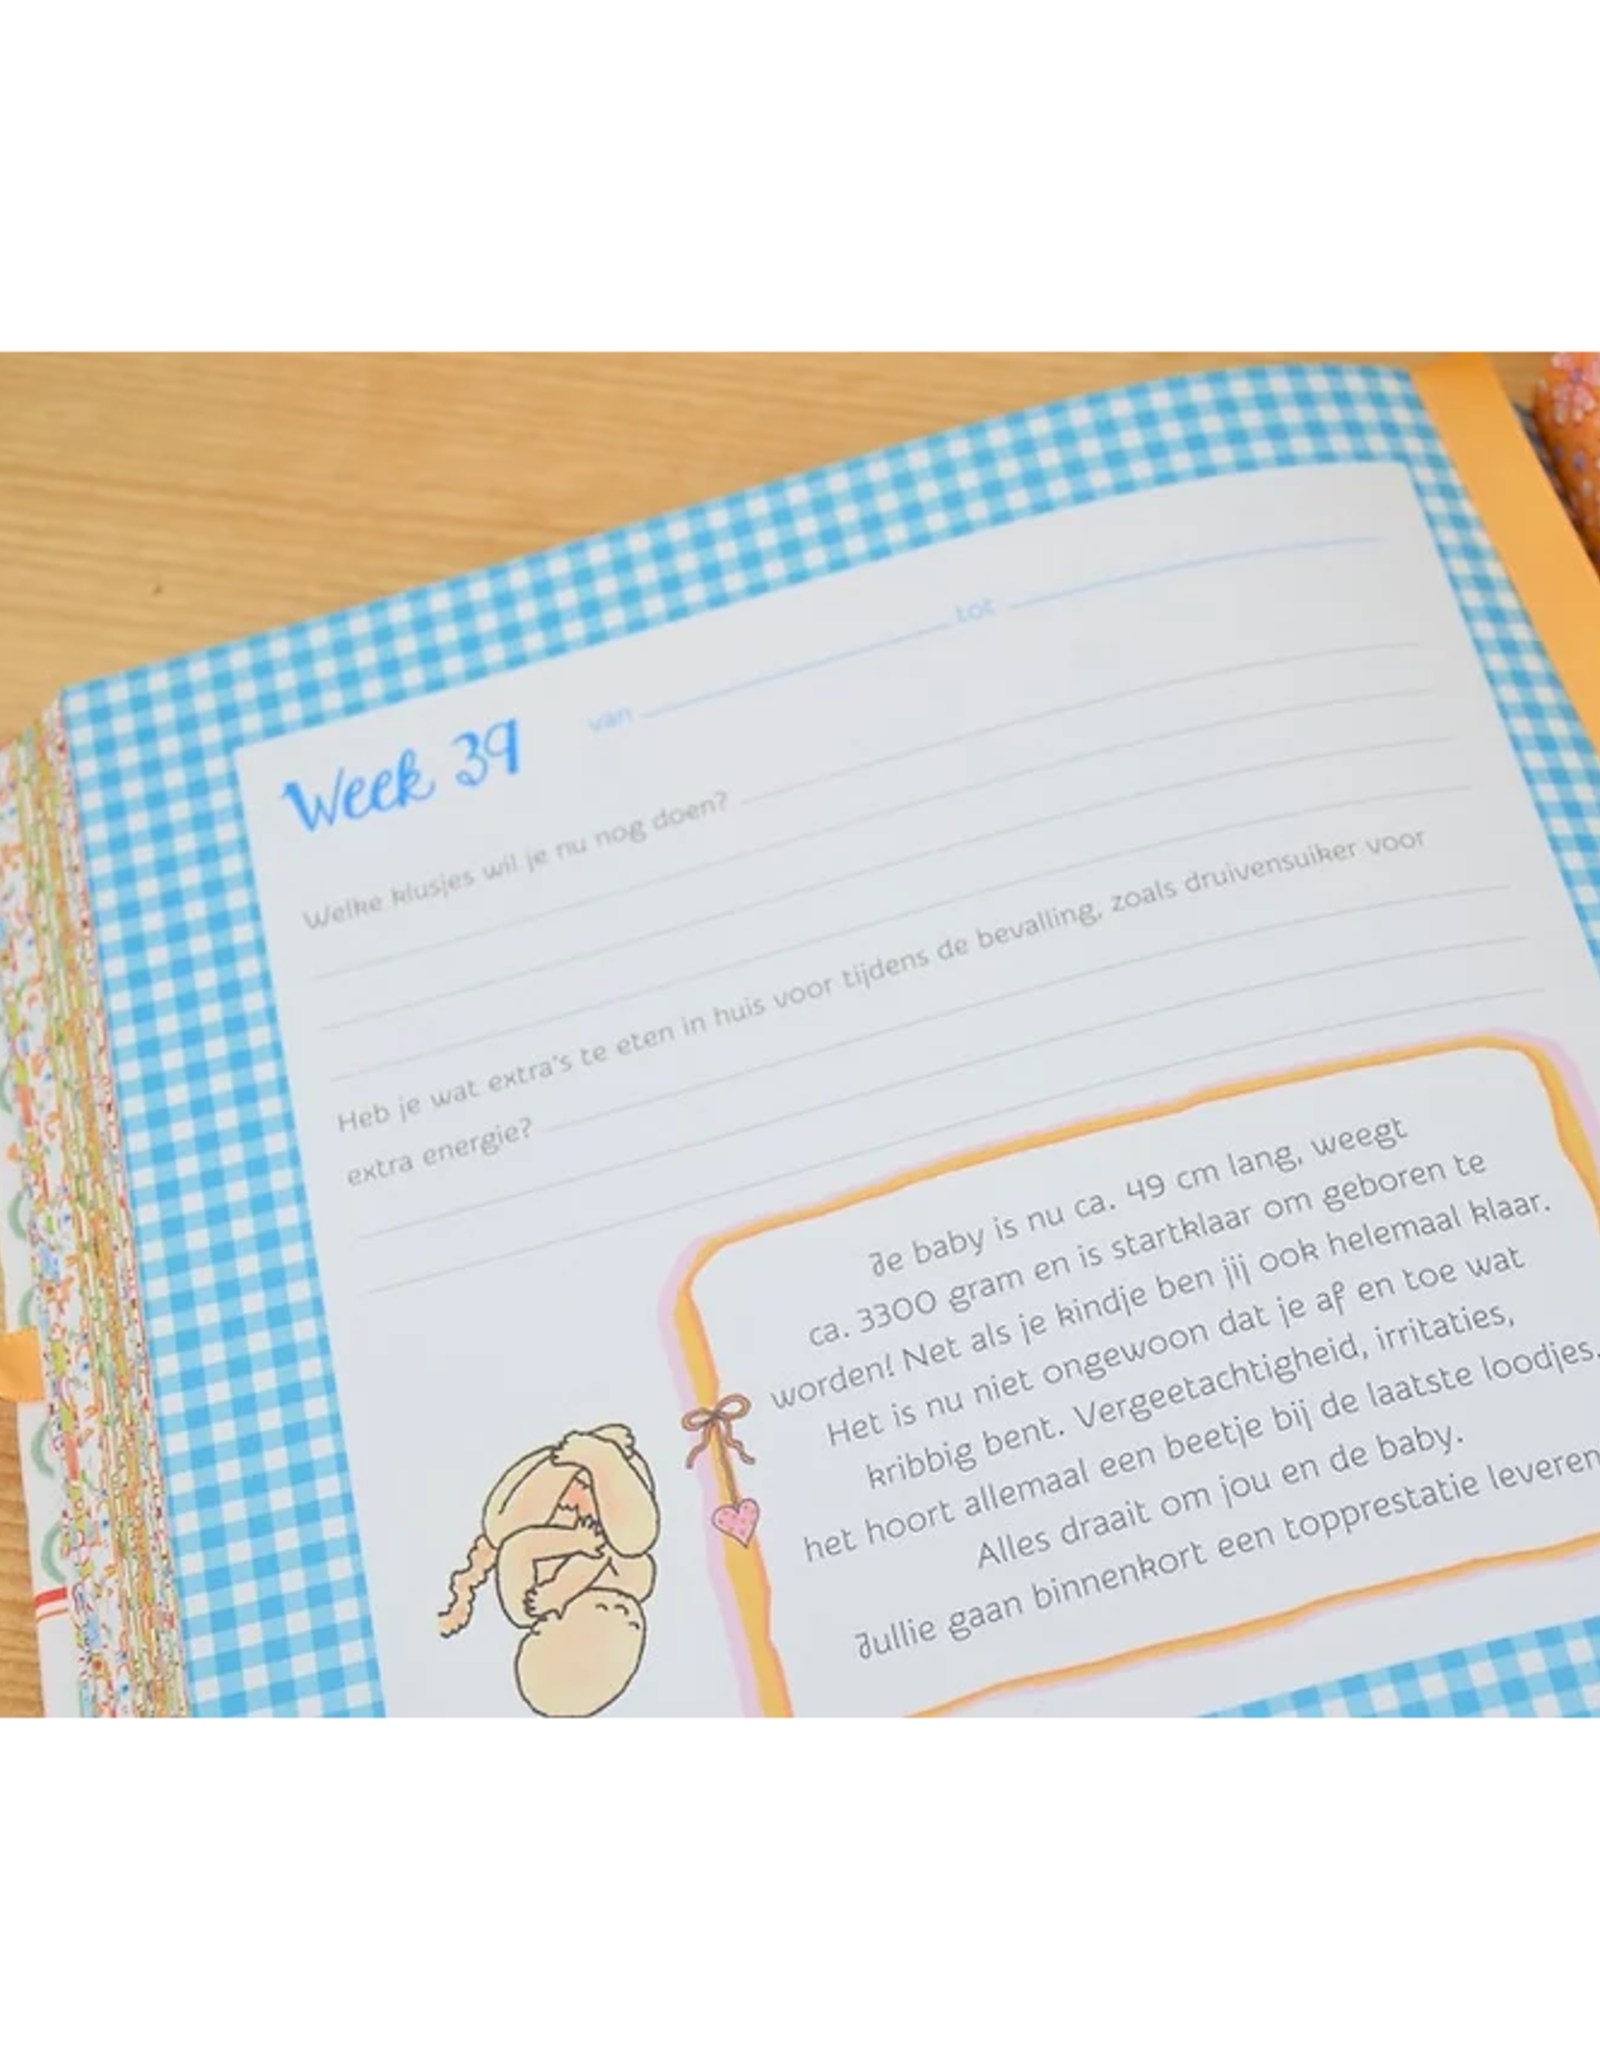 Week 39 van tot
Welke klusjes wil je nu nog doen?
Heb je wat extra's te eten in huis voor tijdens de bevalling, zoals druivensuiker voor
extra energie?
Je baby is nu ca. 49 cm lang, weegt
ca. 3300 gram en is startklaar om geboren te
worden! Net als je kindje ben jij ook helemaal klaar.
Het is nu niet ongewoon dat je af en toe wat
kribbig bent. Vergeetachtigheid, irritaties,
het hoort allemaal een beetje bij de laatste loodjes.
Alles draait om jou en de baby.
Jullie gaan binnenkort een topprestatie leveren